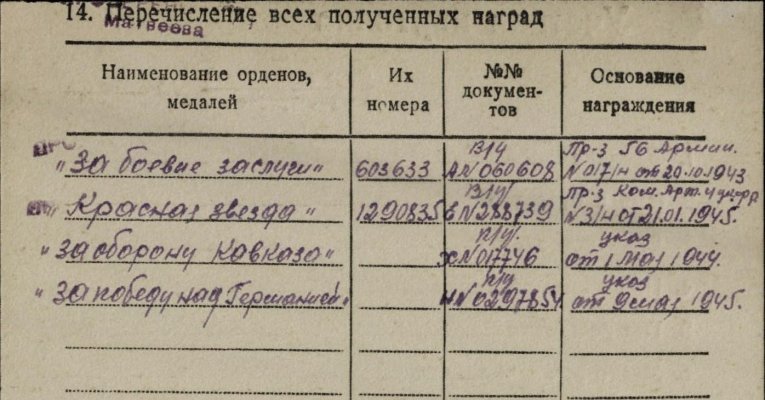 14. Перечисление всех полученных наград
Матвеева
Наименование орденов, медалей
Их номера
№№ документов
Основание награждения
"За боевые заслуги" 603633 в/у А№060608 Пр-з 56 Армии. №017/н от 20.10.1943
"Красная звезда" 1290835 в/у Е№288739 Пр-з Ком. Арт. 4 №3/н от 21.01.1945.
"За оборону Кавказа" п/у х№017746 указ от 1 мая 1944.
"За победу над Германией" п/у н№0297854 указ от 9 мая 1945.